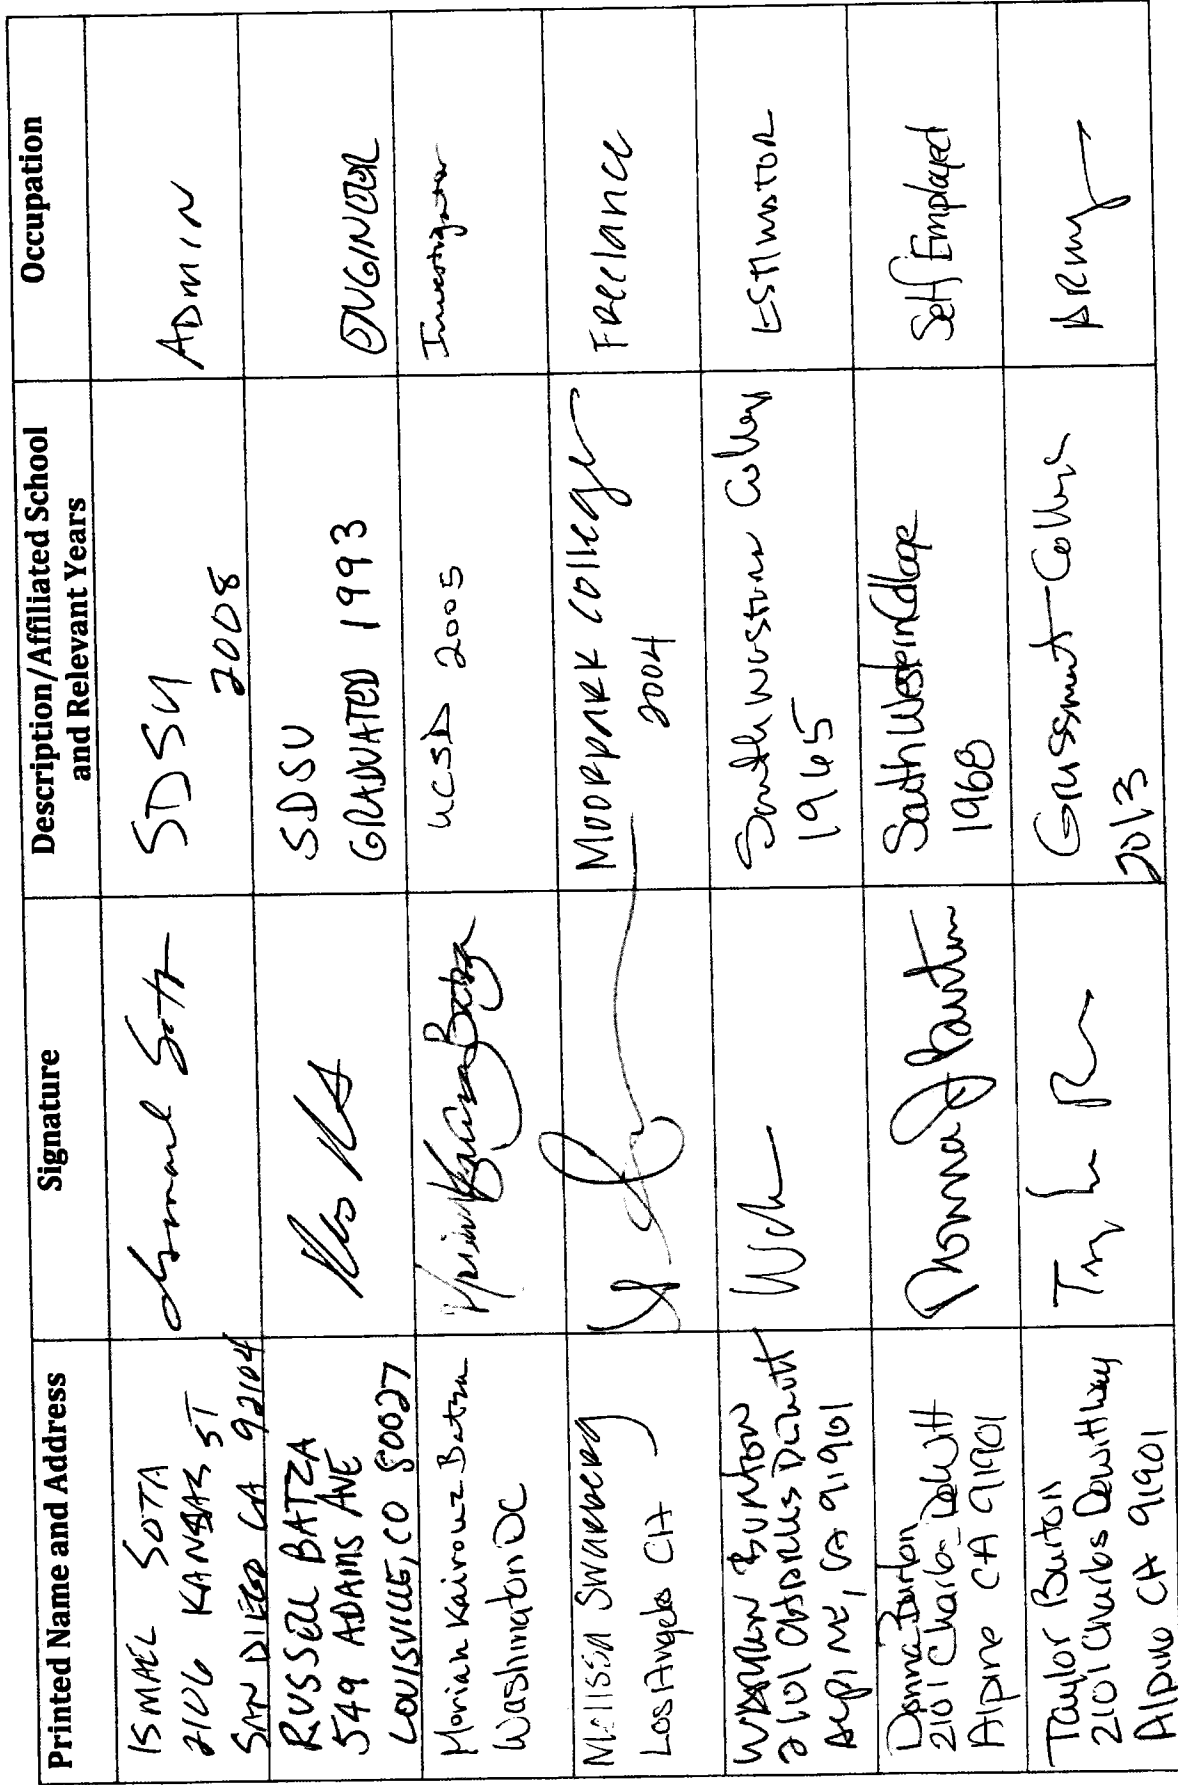 Printed Name and Address
Signature
Description/Affiliated School
and Relevant Years
Occupation
ISMAEL SOTA
2106 KANSAS ST
SAN DIEGO CA 92104
SDSU
2008
ADMIN
RUSSELL BATZA
549 ADAMS AVE
LOUISVILLE, CO 80027
SDSU
GRADUATED 1993
ENGINEER
Moriah Kairouz Batza
Washington DC
UCSD 2005
Investigator
Melissa Swanberg
Los Angeles CA
MOORPARK COLLEGE
2004
Freelance
WARREN BURTON
2101 CHARLES DEWITT
ALPINE, CA 91901
Southwestern College
1965
ESTIMATOR
Donna Burton
2101 Charles DeWitt
Alpine CA 91901
SouthWestern College
1968
Self Employed
Taylor Burton
2101 Charles Dewitt Way
Alpine CA 91901
Grossmont College
2013
ARMY